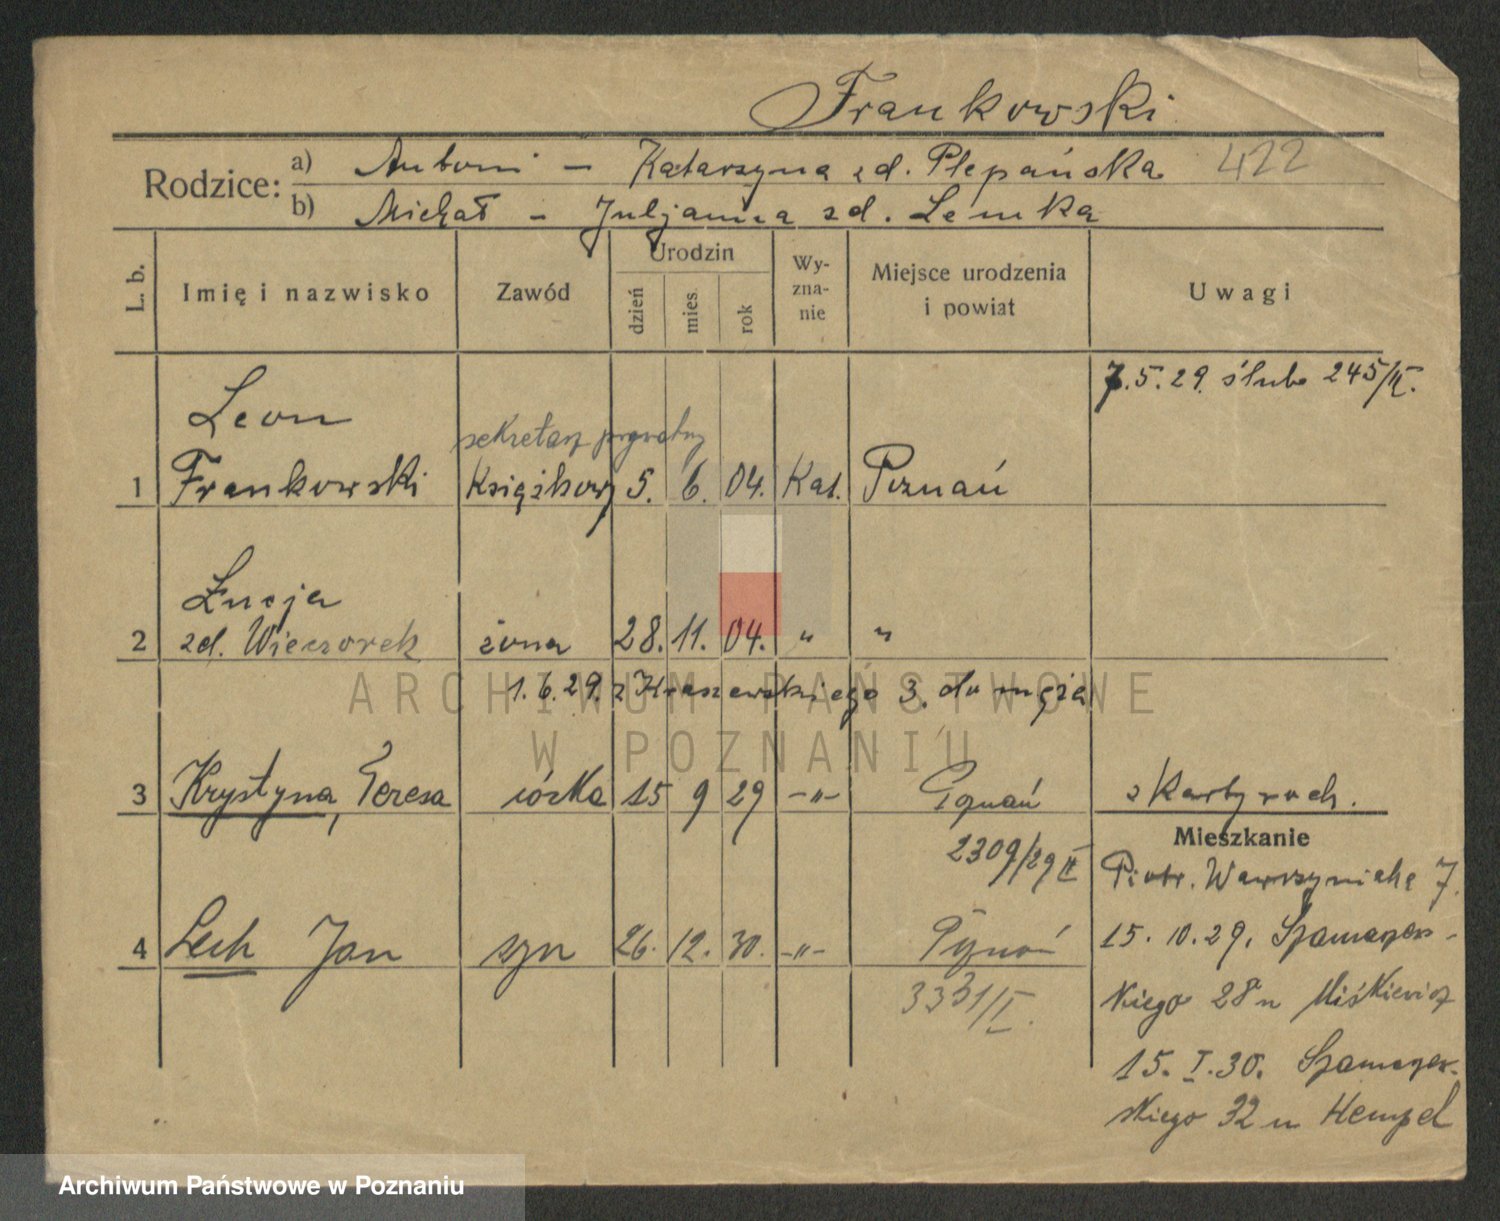 Frankowski
Rodzice: a) Antoni - Katarzyna zd. Plepańska 422
b) Michał - Juljanna zd. Lemka
L. b. Imię i nazwisko Zawód Urodzin dzień mies. rok Wy-zna-nie Miejsce urodzenia i powiat Uwagi
7.5.29. ślub 245/II.
Leon
sekretarz prywatny
1 Frankowski Książkowy 5. 6. 04. Kat. Poznań
Łucja
2 zd. Wieczorek żona 28. 11. 04. " "
1.6.29. z Kraszewskiego 3. do męża
ARCHIWUM PAŃSTWOWE
W POZNANIU
3 Krystyna, Teresa córka 15 9 29 -"- Poznań
2309/29 II
4 Lech Jan syn 26. 12. 30. -"- Poznań
3331/I.
z Karty roch.
Mieszkanie
Piotr. Wawrzyniaka 7.
15.10.29. Szamarzew-
skiego 28 u Miśkiewicz
15.I.30. Szamarzew-
skiego 32 u Hempel
Archiwum Państwowe w Poznaniu